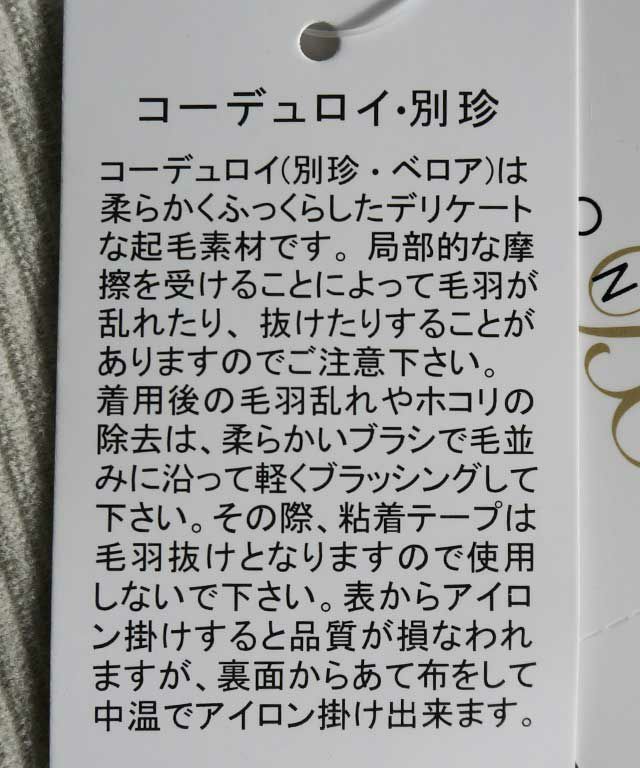 コーデュロイ・別珍
コーデュロイ(別珍・ベロア)は
柔らかくふっくらしたデリケート
な起毛素材です。局部的な摩
擦を受けることによって毛羽が
乱れたり、抜けたりすることが
ありますのでご注意下さい。
着用後の毛羽乱れやホコリの
除去は、柔らかいブラシで毛並
みに沿って軽くブラッシングして
下さい。その際、粘着テープは
毛羽抜けとなりますので使用
しないで下さい。表からアイロ
ン掛けすると品質が損なわれ
ますが、裏面からあて布をして
中温でアイロン掛け出来ます。